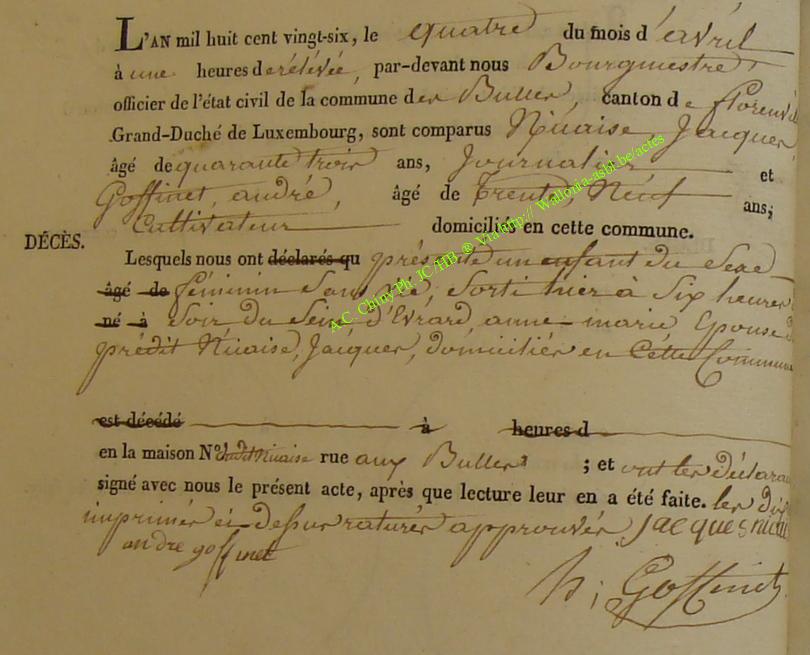 L'AN mil huit cent vingt-six, le quatre du mois d'avril
à une heures de rélévée, par-devant nous Bourgmestre
officier de l'état civil de la commune des Bulles, canton de florenvil
Grand-Duché de Luxembourg, sont comparus Niuaise, Jacques
âgé de quarante trois ans, Journalier et
Goffinet, andré, âgé de Trente Neuf ans,
Cultivateur domiciliés en cette commune.
DÉCÈS.
Lesquels nous ont déclarés qu présenté un enfant du Sexe
âgé de féminin Sans vie, Sorti hier à Six heures
né à Soir du Sein d'Evrard, anne-marie Epouse d
prédit Niuaise, Jacques, domiciliés en Cette Commune
est décédé à heures d
en la maison No dudit Niuaise rue aux Bulles ; et ont les déclara
signé avec nous le présent acte, après que lecture leur en a été faite. les dix
imprimés ci-dessus raturés approuvés. Jacques niua
andre goffinet
h; Goffinet
A.C. Chiny Ph. JC /HB. ® Via http:// Wallonia-asbl.be/actes